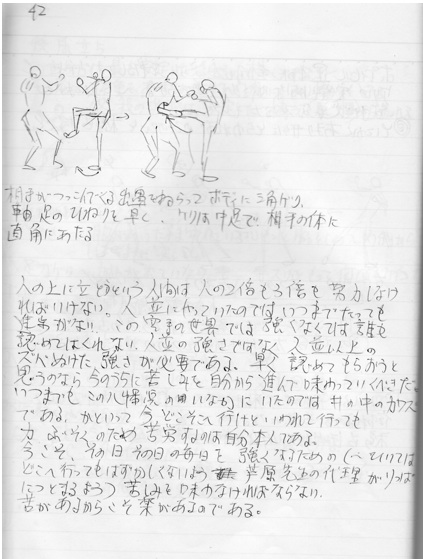 42
相手がつっこんでくる出鼻をねらってボディに三角ゲリ。
軸足のひねりを早く、ケリは中足で相手の体に
直角にあたる
人の上に立とうという人間は人の2倍も3倍も努力しなけ
ればいけない。人並にやっていたのではいつまでたっても
進歩がない。この空手の世界では強くなくては誰も
認めてはくれない。人並の強さではなく人並以上の
ズバぬけた強さが必要である。早く認めてもらおうと
思うのなら今のうちに苦しみを自分から進んで味わっていくべきだ。
いつまでもこの八幡浜の田いなかにいたのでは井の中のカワズ
である。かといって今どこそこへ行けといわれて行っても
力 そのため苦労するのは自分本人である。
今こそ、その日その日の毎日を強くなるための
どこへ行ってもはずかしくないよう 芦原先生の代理がりっぱ
につとまるよう 苦しみを味わなければならない。
苦があるからこそ楽があるのである。